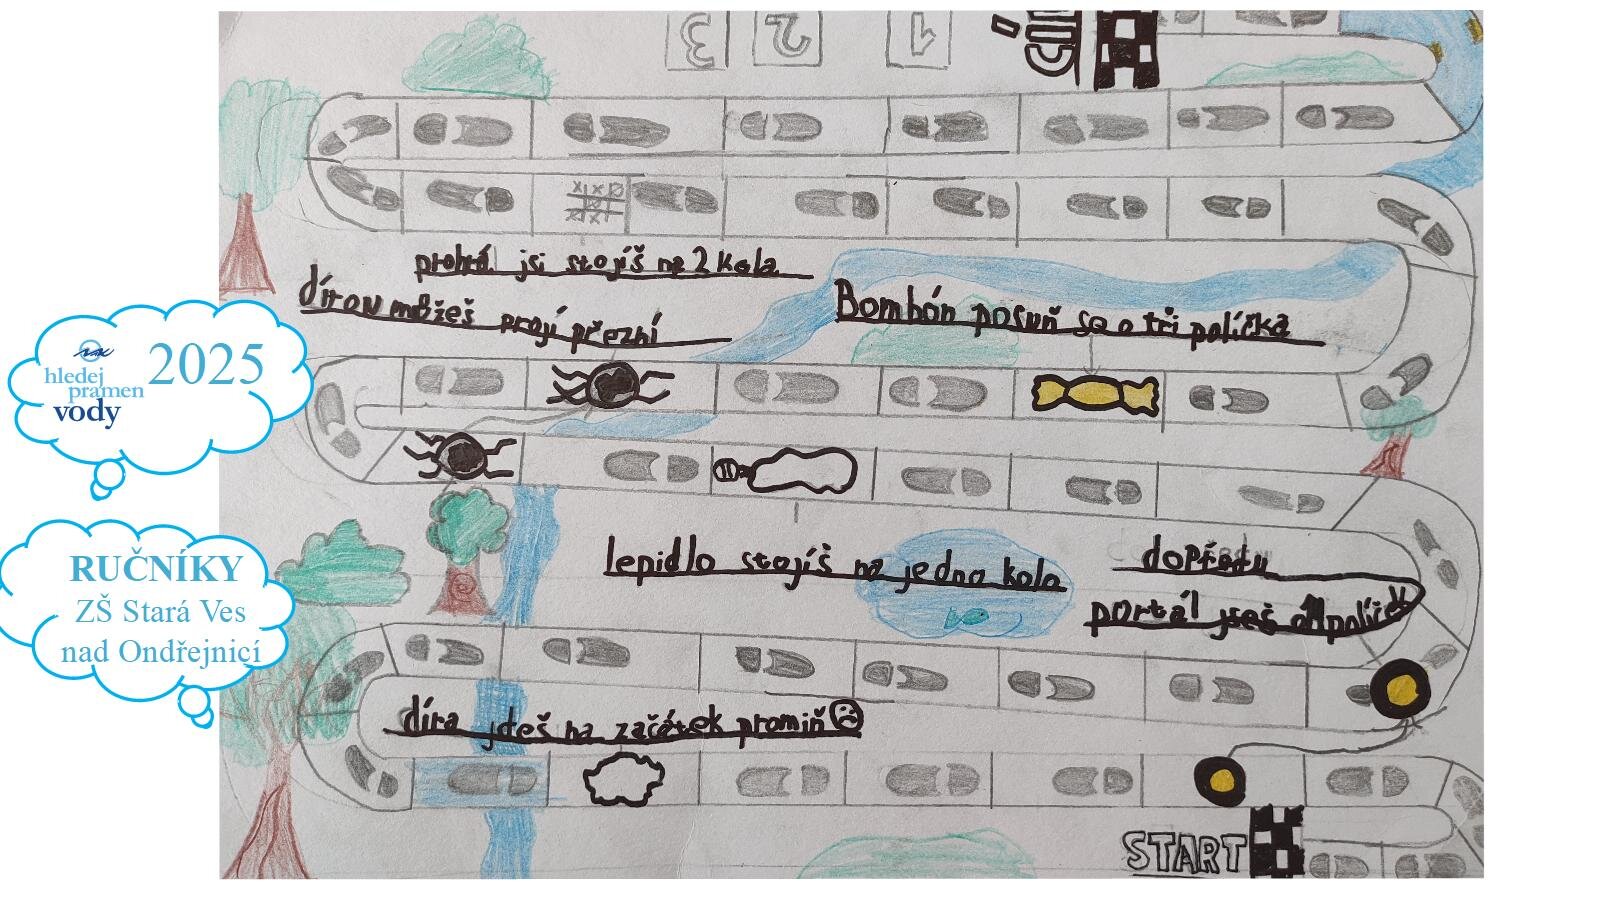 3 2 1 CÍL
prohrál jsi stojíš na 2 kola
dírou můžeš projí přezní
Bombón posuň se o tři políčka
2025
hledej
pramen
vody
lepidlo stojíš na jedno kolo
dopředu
portál jseš o 11 políček
RUČNÍKY
ZŠ Stará Ves
nad Ondřejnicí
díra jdeš na začátek promiň
START